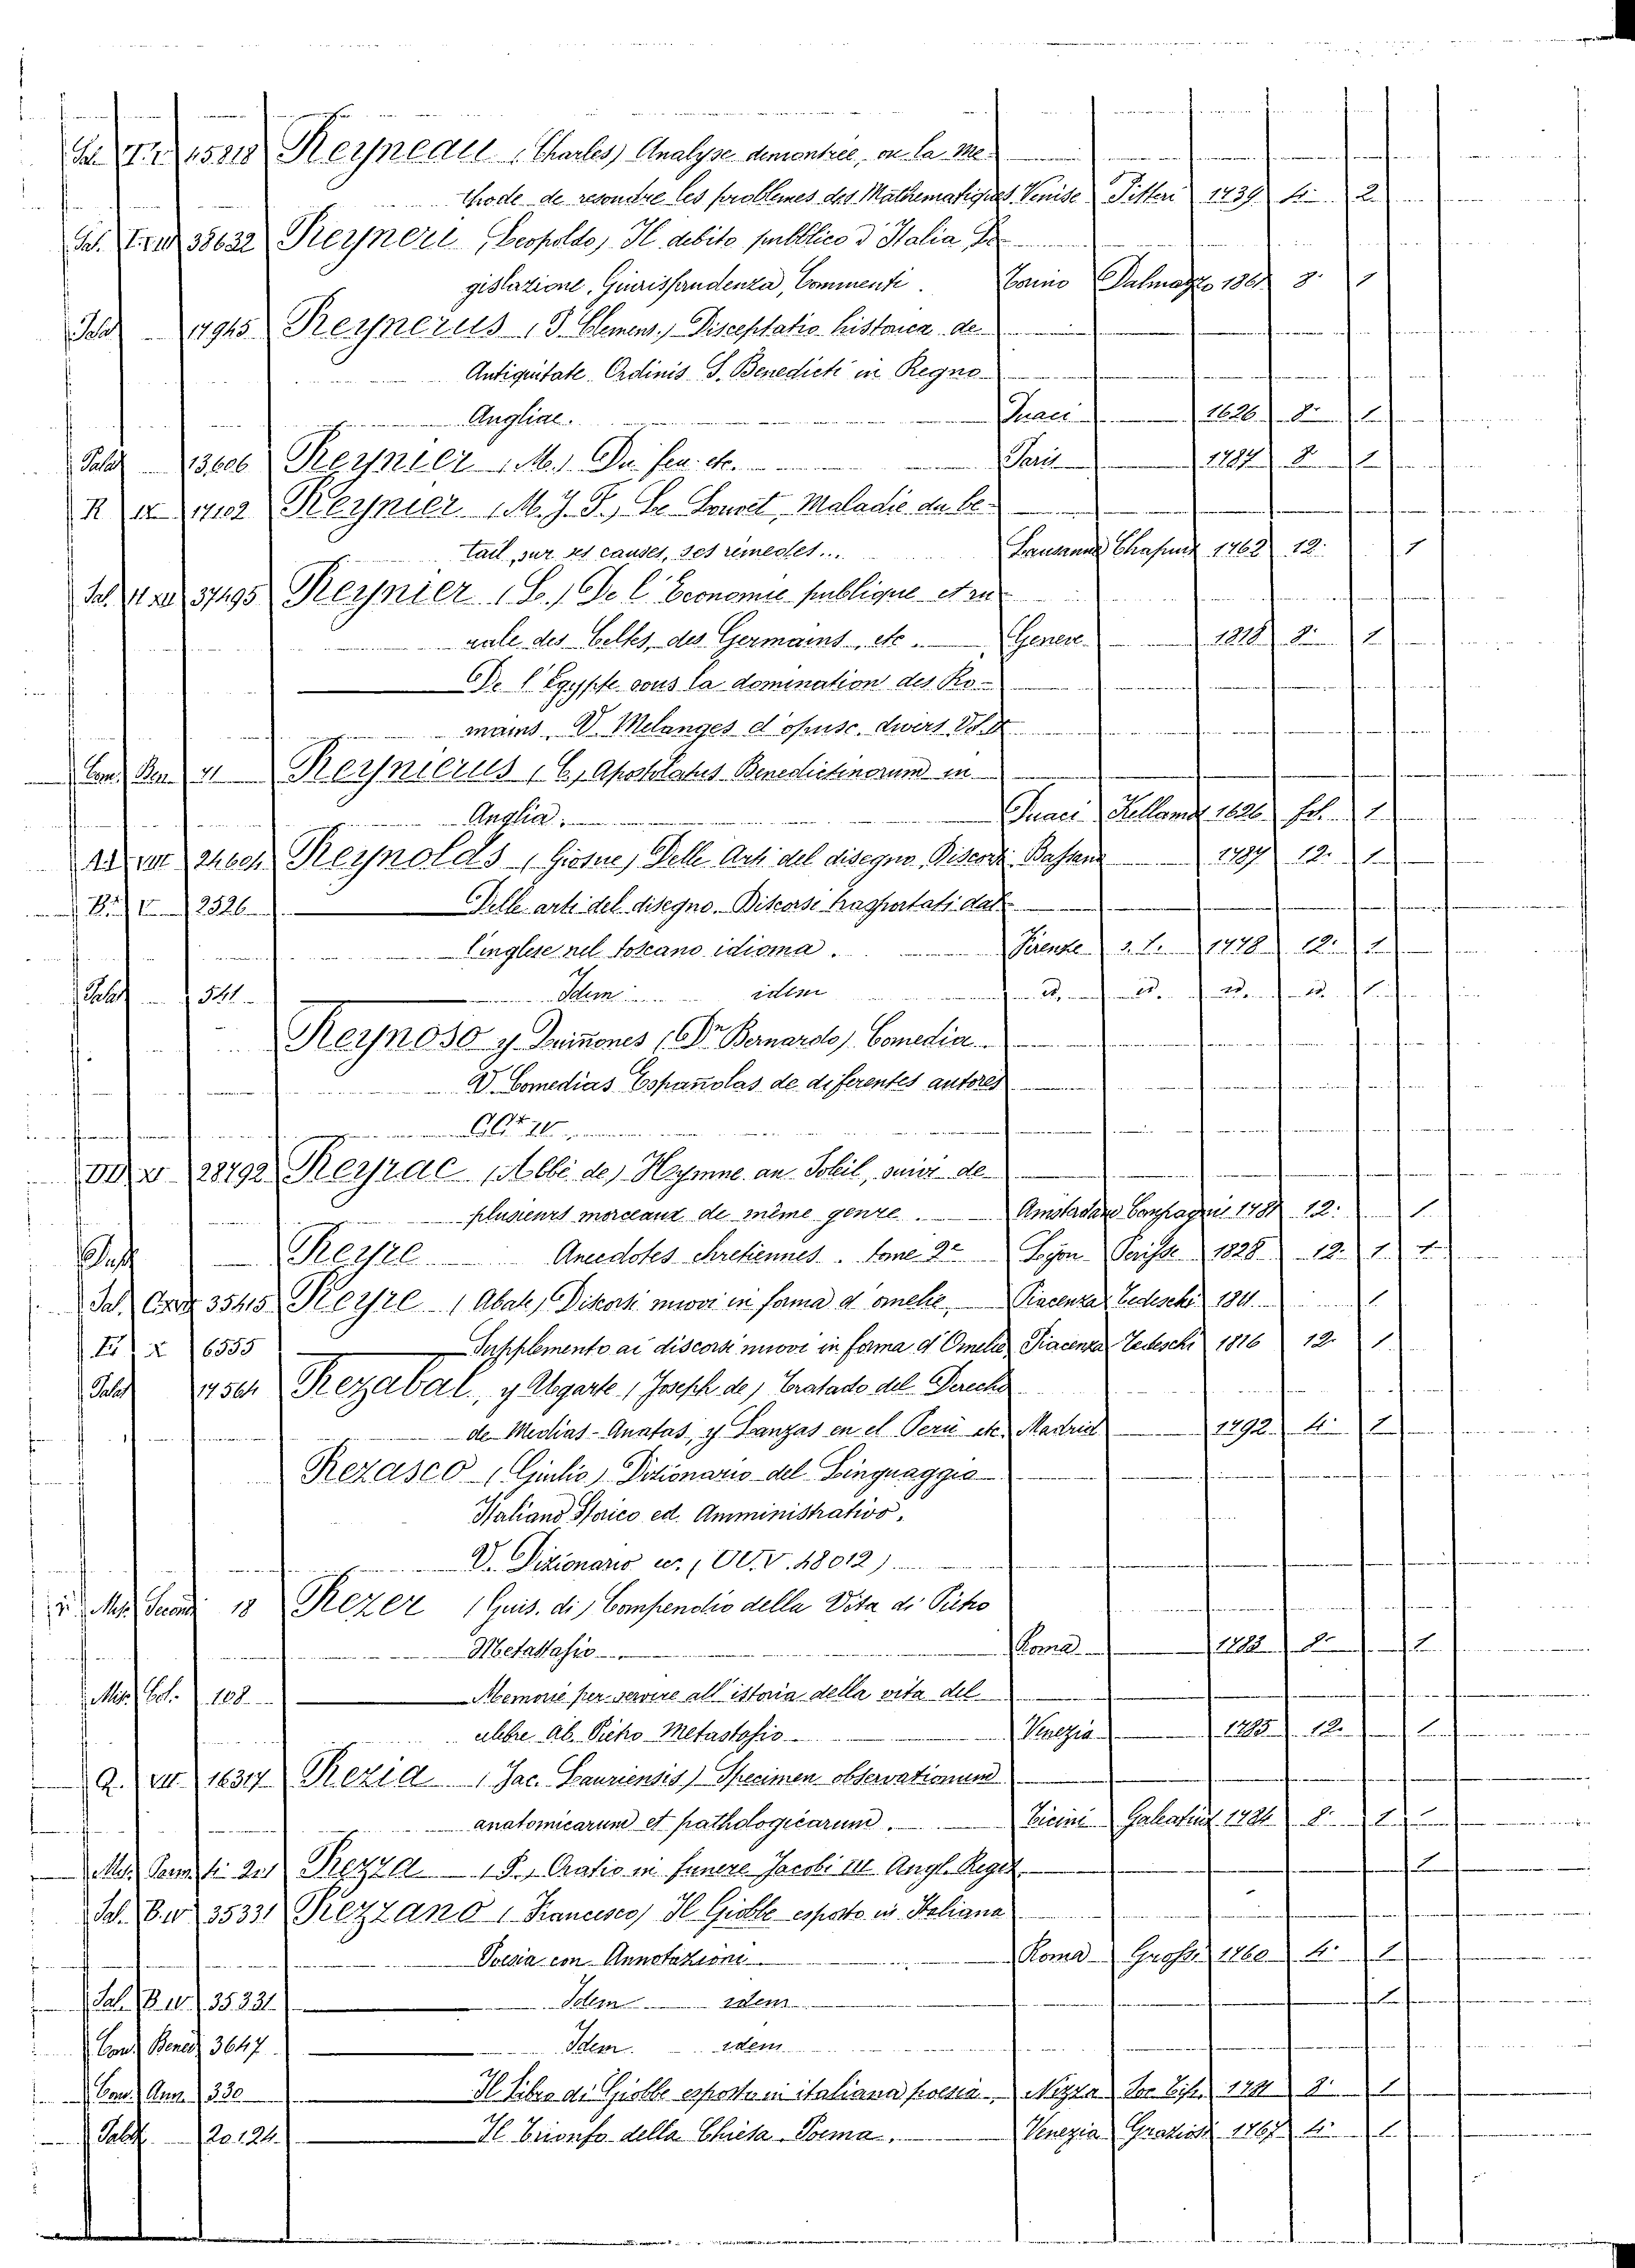 15818 Reyneau (Charles) Analyse demontrée, ou la Me-
thode de resoudre les problemes des Mathematiques. Venise Pitteri 1739 4: 2
38632 Reyneri (Leopoldo) Il debito pubblico d'Italia Le-
gislazione, Giurisprudenza, Commenti. Torino Dalmazzo 8: 1
Palat 14945 Reynerus (P. Clemens) Disceptatio historica de
Antiquitate Ordinis S. Benedicti in Regno
Angliae. Duaci 1626 8: 1
Palat 13606 Reynier (M.) Du feu. etc. Paris 1787 8 1
R 17102 Reynier (M. J. F.) Le Louvet, Maladie du be-
tail, sur ses causes, ses remedes... Lausanne 1762 12: 1
37495 Reynier (L.) De l'Economie publique et ru
rale des Celtes, des Germains, etc. Geneve 1818 8: 1
De l'Egypte sous la domination des Ro-
mains. V. Melanges d'opusc. divers
41 Reynierus (C.) Apostolatus Benedictinorum in
Anglia. Duaci Kellami 1626 fol. 1
Reynolds (Giosue) Delle Arti del disegno Discorsi Bassano 1787 12: 1
2326 Delle arti del disegno. Discorsi trasportati dal
l'inglese nel toscano idioma. Firenze s. t. 1778 12: 1
Palat 541 Idem idem id. id. id. id. 1
Reynoso y Quiñones (Dr Bernardo) Comedia
V. Comedias Españolas de diferentes autores
28792 Reyrac (Abbé de) Hymne au Soleil, suivi de
plusieurs morceaux de même genre. Amsterdam Compagnie 1781 12: 1
Reyre Anecdotes chretiennes. Tome 2e Lyon Perisse 1828 12. 1 1
35415 Reyre (Abate) Discorsi nuovi in forma d'omelie, Piacenza Tedeschi 1811 1
X 6555 Supplemento ai discorsi nuovi in forma d'Omelie, Piacenza Tedeschi 1816 12: 1
Palat 14564 Rezabal, y Ugarte (Joseph de) Tratado del Derecho
de Medias-Anatas, y Lanzas en el Perú etc. Madrid 1792 4: 1
Rezasco (Giulio) Dizionario del Linguaggio
Italiano Storico ed Amministrativo.
V. Dizionario ec. (OO.V.48012)
18 Rezer (Guis. di) Compendio della Vita di Pietro
Metastasio Roma 1783 8: 1
108 Memorie per servire all'istoria della vita del
celebre Ab. Pietro Metastasio Venezia 1785 12. 1
Q. VII 16317 Rezia (Jac. Lauriensis) Specimen observationum
anatomicarum et pathologicarum. Ticini Galeatius 1784 8: 1
Rezza (F.) Oratio in funere Jacobi III Angl. Regis 1
35331 Rezzano (Francesco) Il Giobbe esposto in Italiana
Poesia con Annotazioni Roma Grossi 1760 4: 1
35331 Idem idem 1
Con. Bened. 3647 Idem idem
Con. Ann. 330 Il Libro di Giobbe esposto in italiana poesia. Nizza Soc. Tip. 1781 8: 1
Palat 20124 Il Trionfo della Chiesa Poema. Venezia Graziosi 1767 4: 1